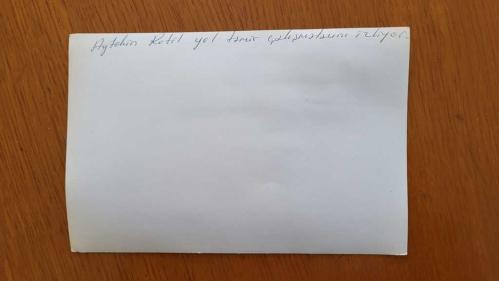 Aytekin Kotil yol tamir çalışmalarını izliyor.